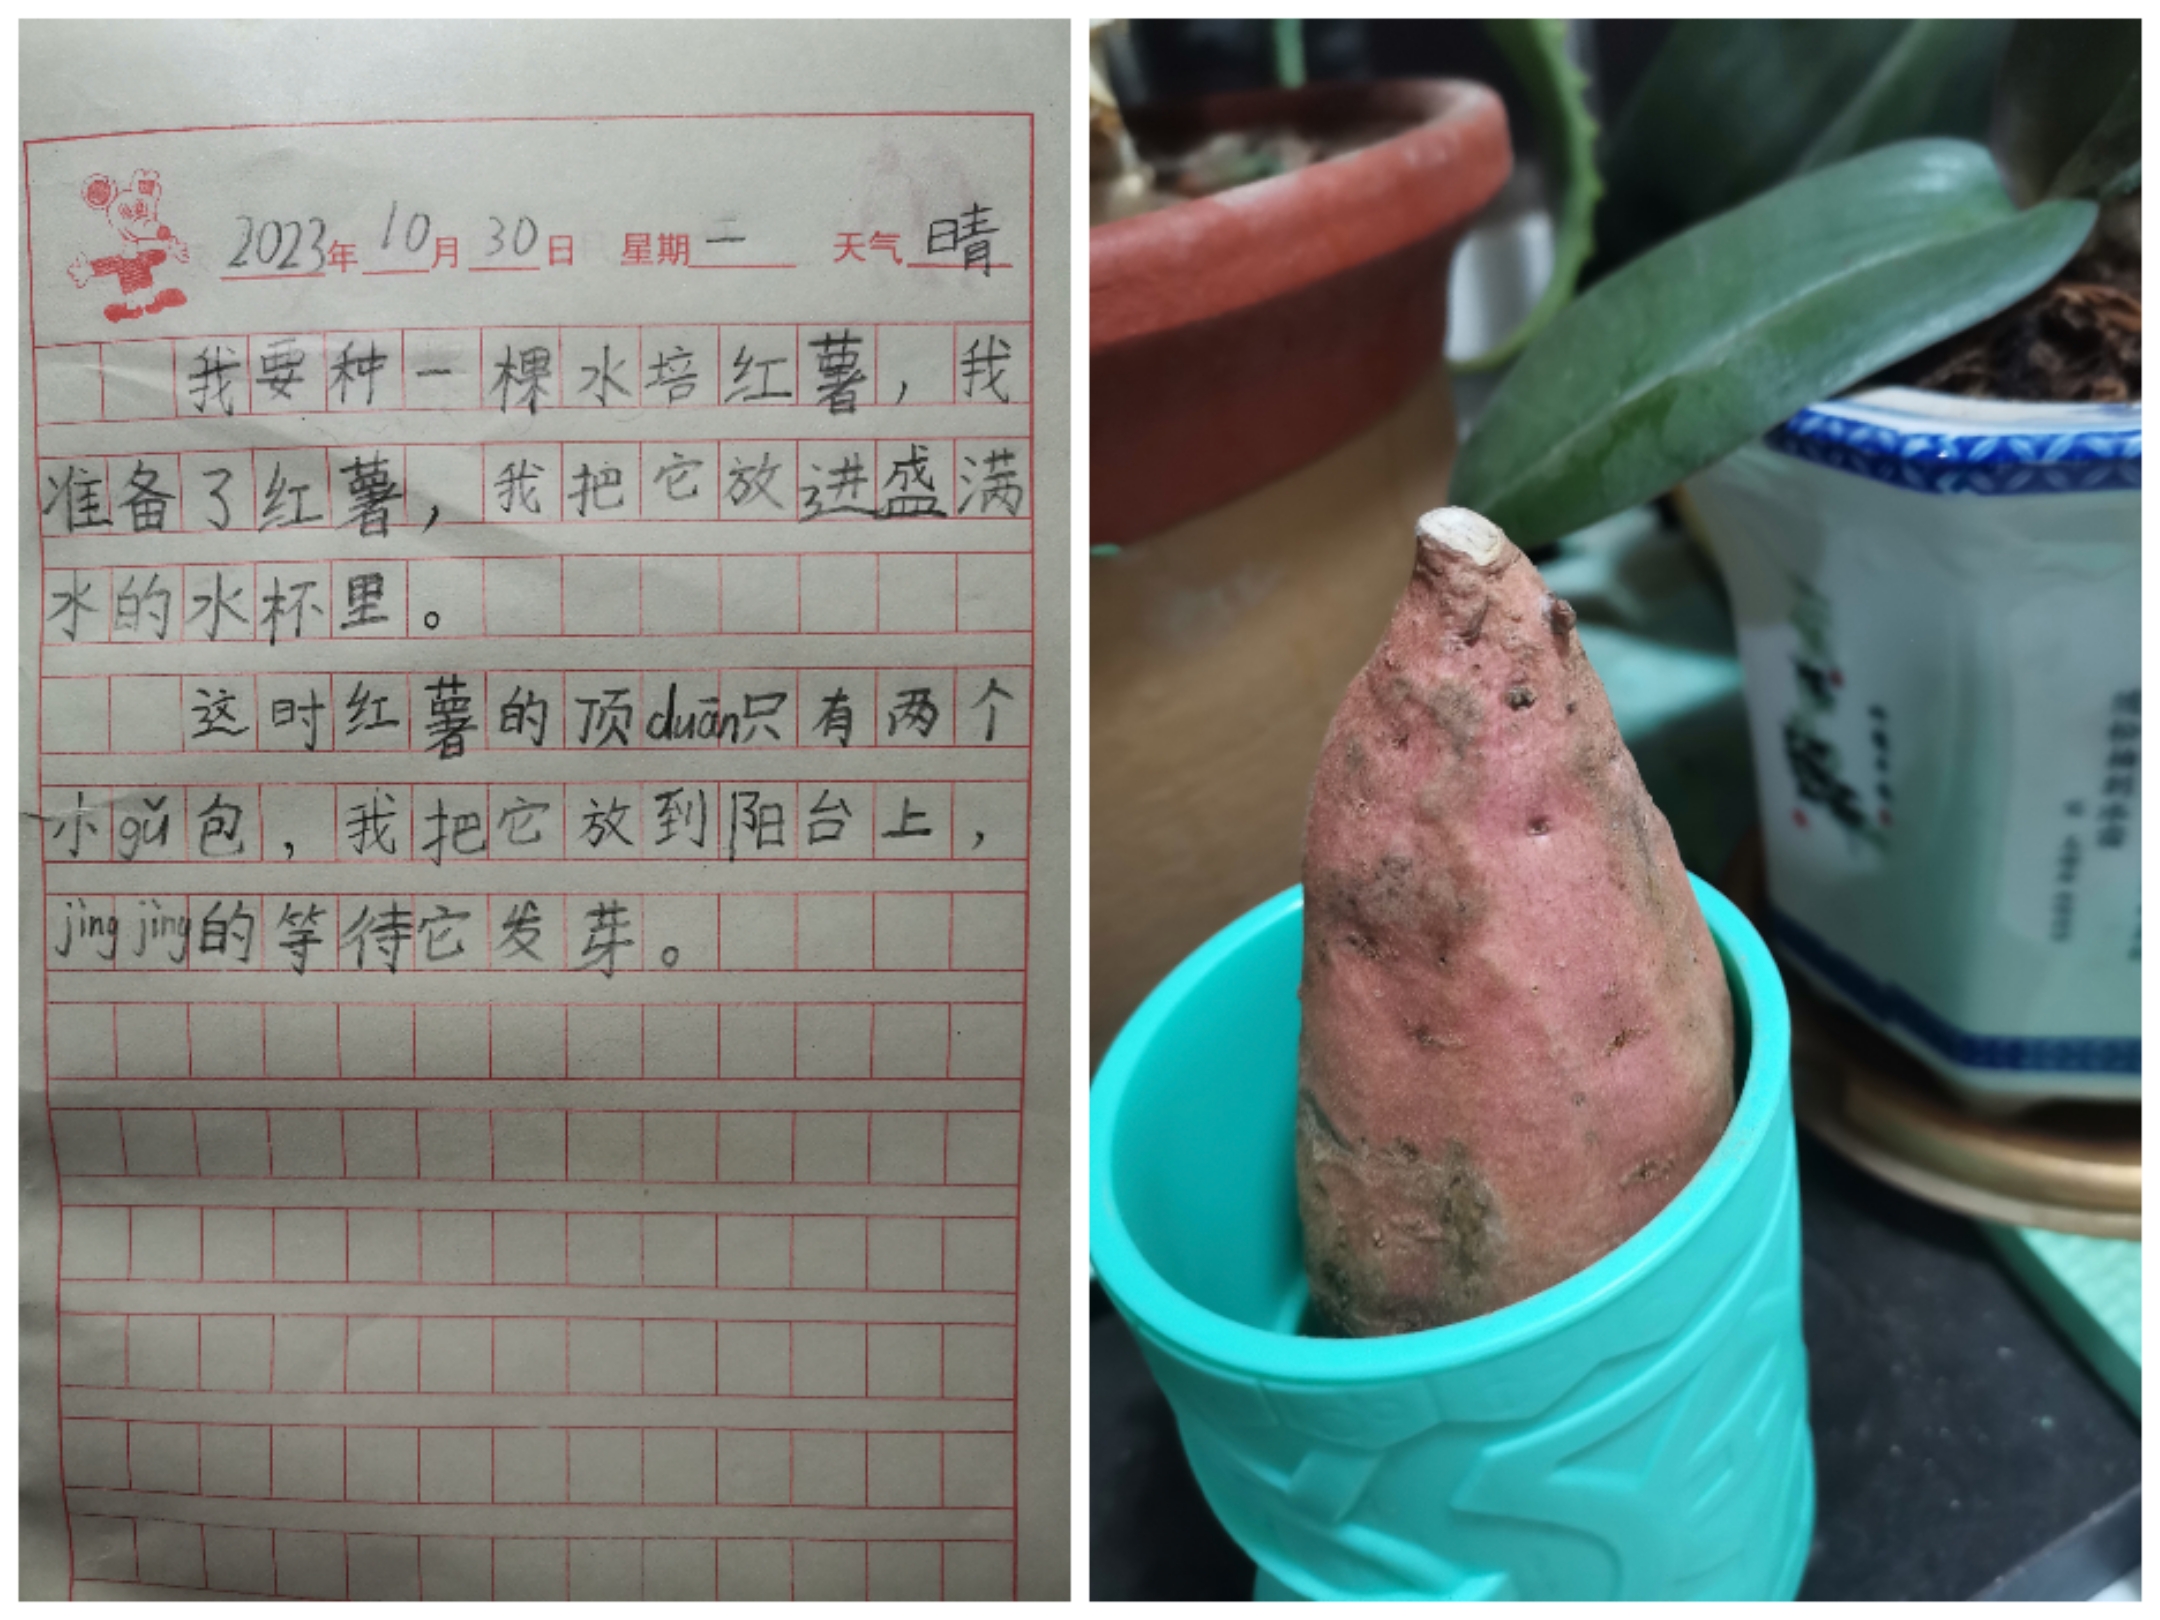 2023年10月30日 星期二 天气晴
我要种一棵水培红薯，我
准备了红薯，我把它放进盛满
水的水杯里。
这时红薯的顶duān只有两个
小gǔ包，我把它放到阳台上，
jìng jìng的等待它发芽。